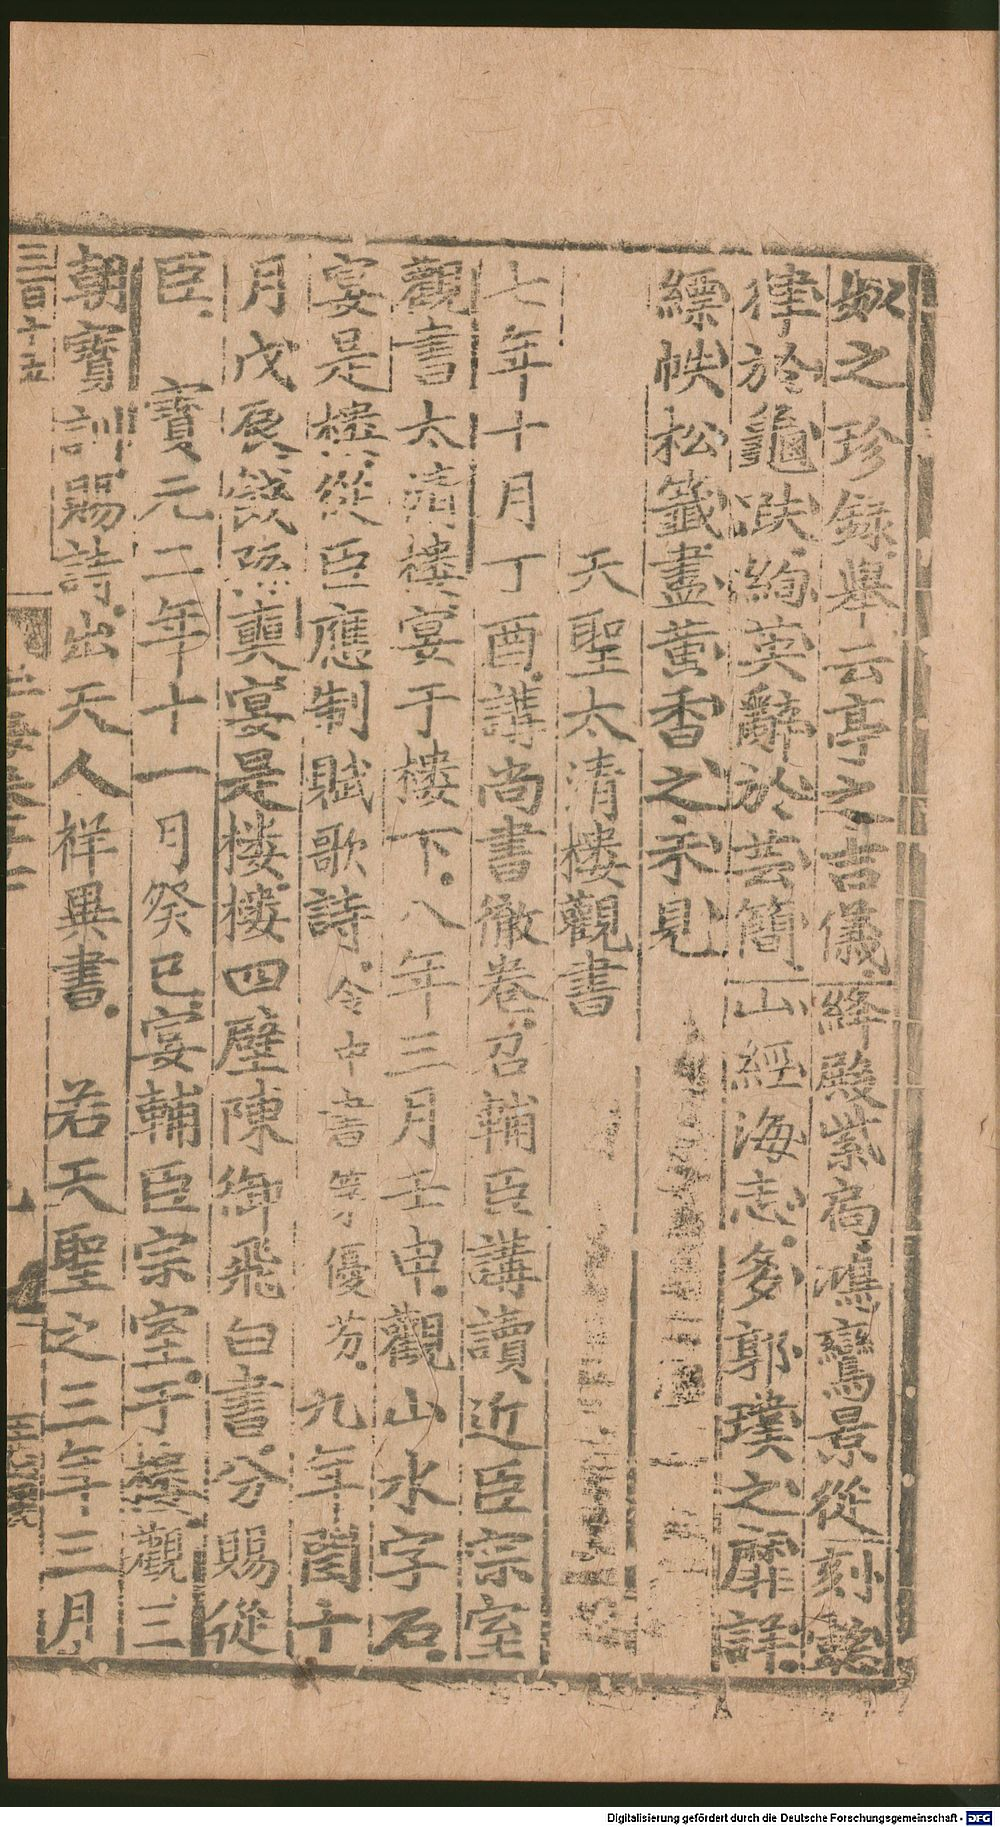 之珍録舉云亭之吉儀絳殿紫扃鴻鸞景從刻懿
律於龜趺絢英辭於芸簡山經海志多郭璞之靡詳
縹帙松籤盡黄香之未見
天聖太清樓觀書
七年十月丁酉講尚書徹卷召輔臣講讀近臣宗室
觀書太清樓宴于樓下八年三月壬申觀山水字石
宴是樓從臣應制賦歌詩令中書第優劣九年閏十
月戊辰餞孫奭宴是樓樓四壁陳御飛白書分賜從
臣 寳元二年十一月癸巳宴輔臣宗室于樓觀三
朝寳訓賜詩出天人祥異書 若天聖之三年三月
三百十五
玉海卷三十